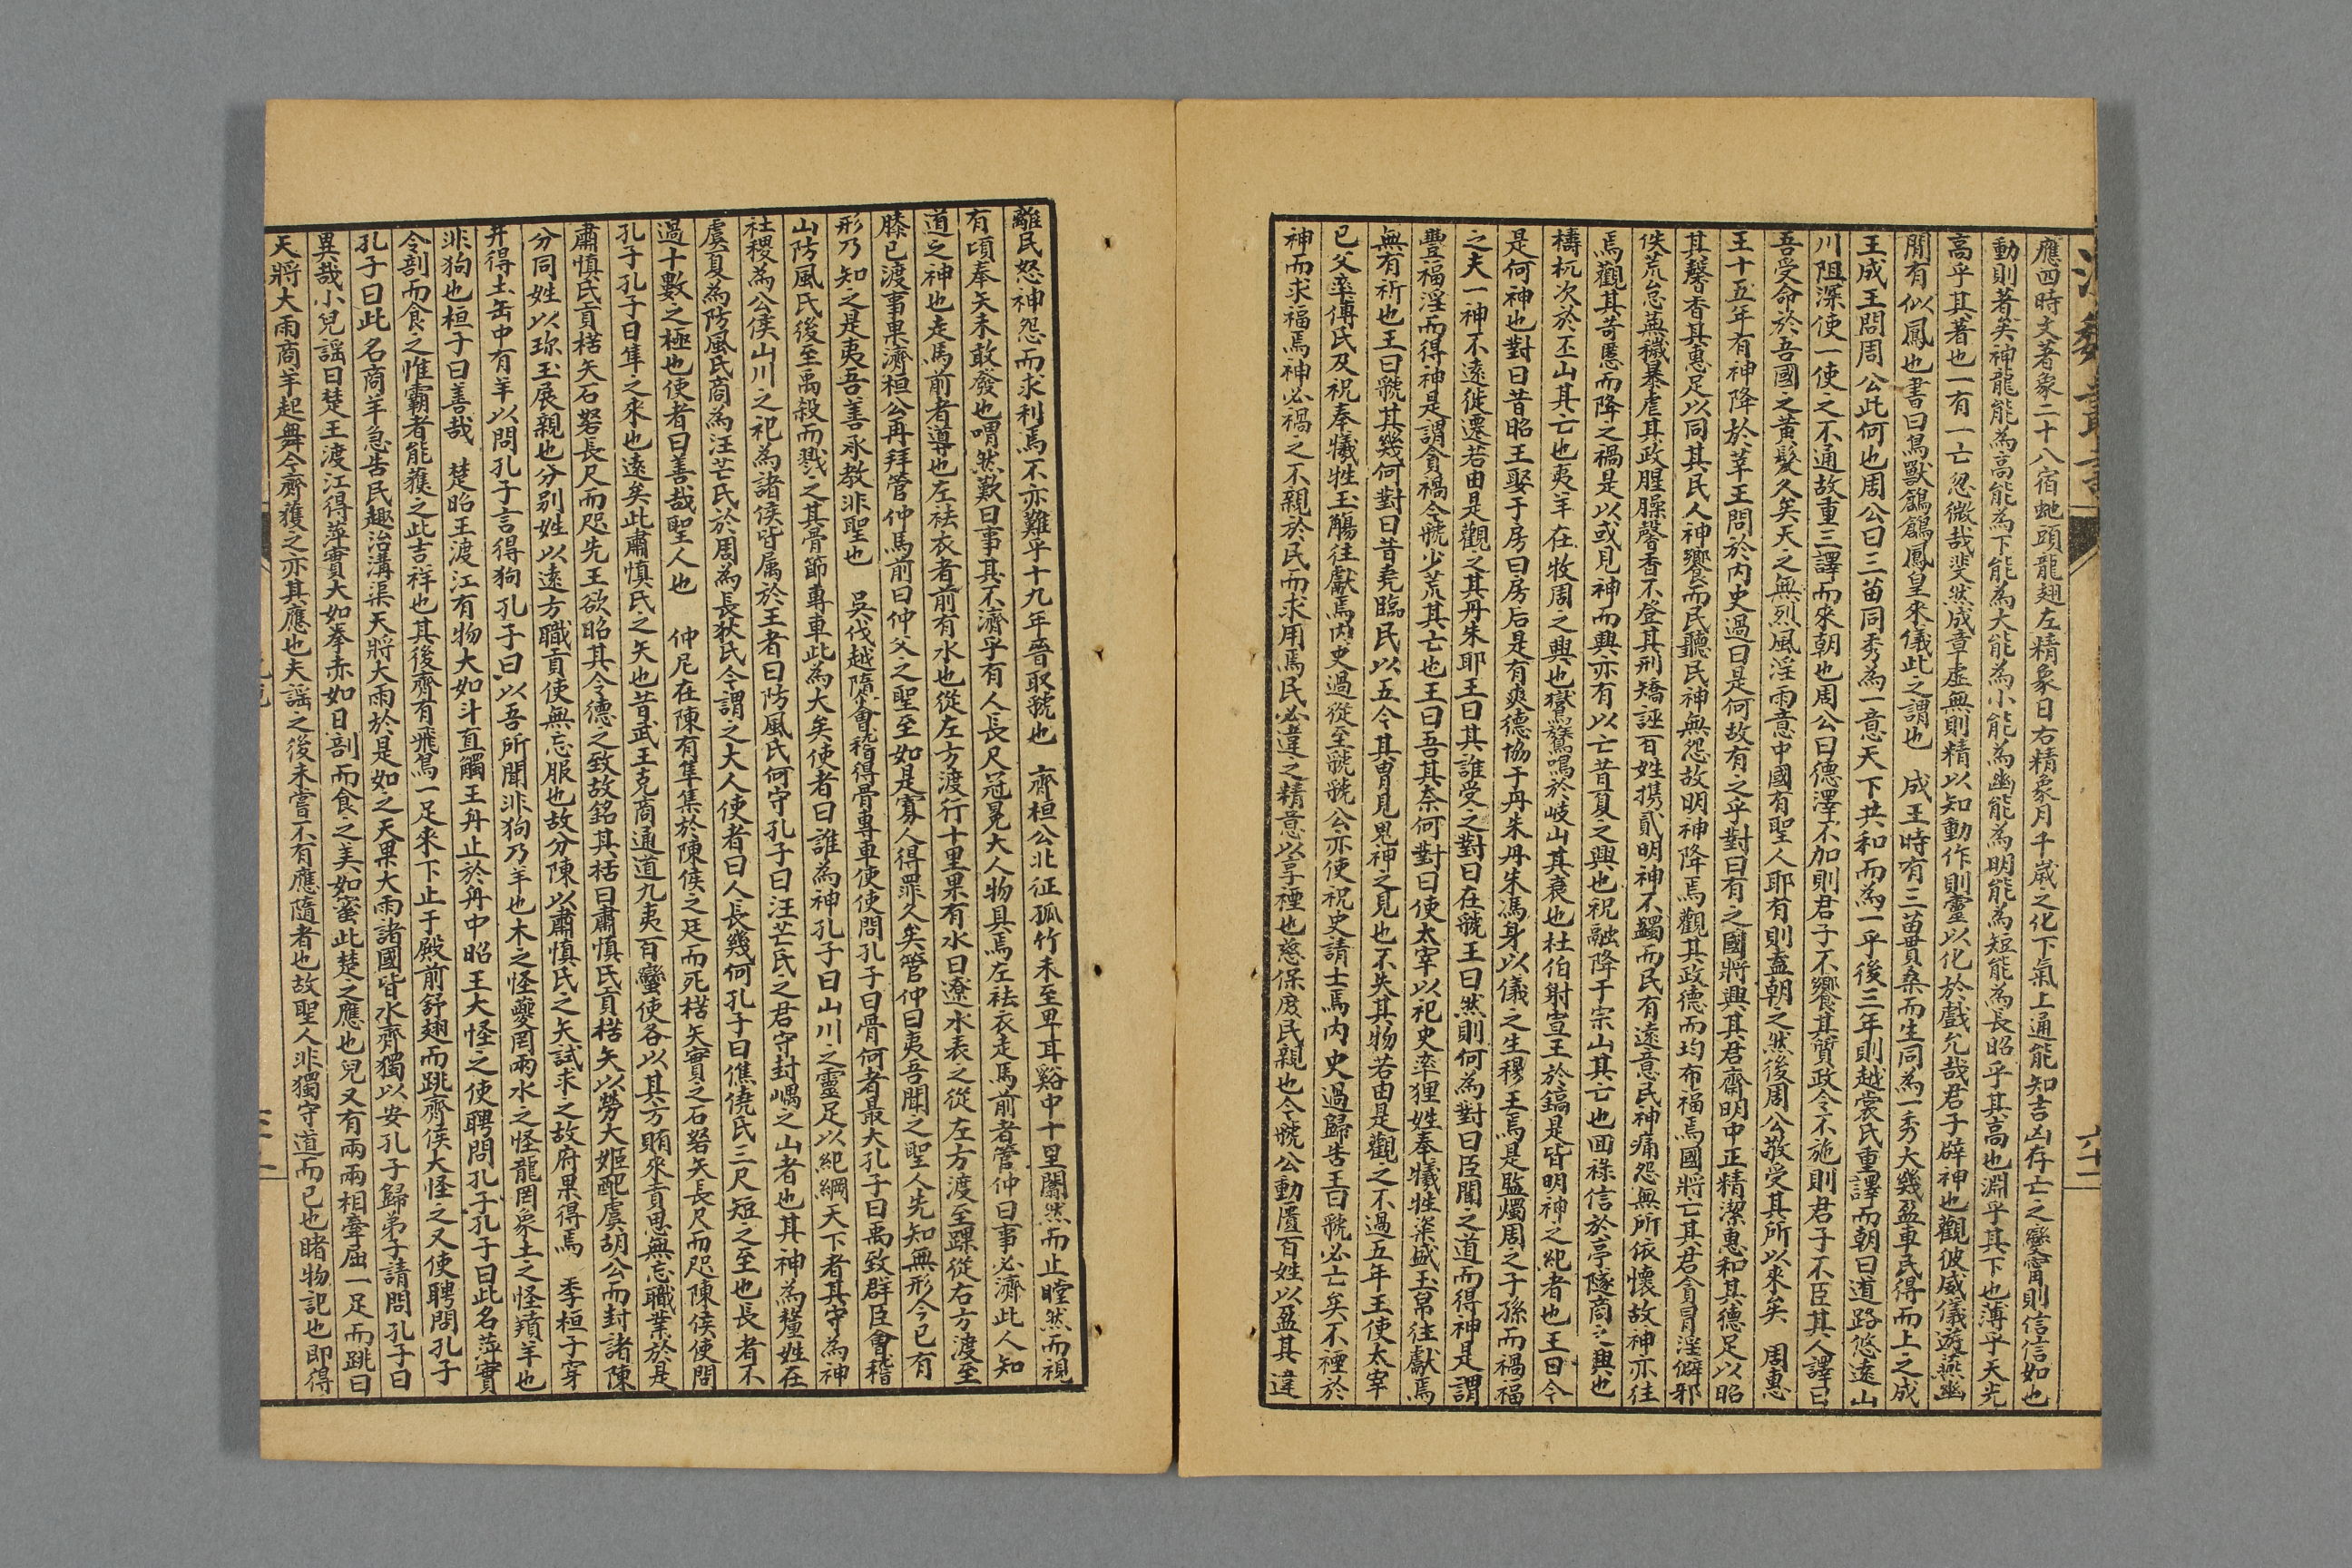 應四時文著象二十八宿虵頭龍翅左精象日右精象月千歲之化下氣上通能知吉凶存亡之變寧則信信如也
動則著矣神龍能為高能為下能為大能為小能為幽能為明能為短能為長昭乎其高也淵乎其下也薄乎天光
高乎其著也一有一亡忽微哉斐然成章虛無則精以知動作則靈以化於戲允哉君子辟神也觀彼威儀遊燕幽
閒有似鳳也書曰鳥獸鶬鶬鳳皇來儀此之謂也　成王時有三苗貫桑而生同為一秀大幾盈車民得而上之成
王成王問周公此何也周公曰三苗同秀為一意天下共和而為一乎後三年則越裳氏重譯而朝曰道路悠遠山
川阻深使一使之不通故重三譯而來朝也周公曰德澤不加則君子不饗其質政令不施則君子不臣其人譯曰
吾受命於吾國之黃髮久矣天之無烈風淫雨意中國有聖人耶有則盍朝之然後周公敬受其所以來矣　周惠
王十五年有神降於莘王問於內史過曰是何故有之乎對曰有之國將興其君齋明中正精潔惠和其德足以昭
其馨香其惠足以同其民人神饗而民聽民神無怨故明神降焉觀其政德而均布福焉國將亡其君貪冒淫僻邪
佚荒怠蕪穢暴虐其政腥臊馨香不登其刑矯誣百姓携貳明神不蠲而民有遠意民神痛怨無所依懷故神亦往
焉觀其苛慝而降之禍是以或見神而興亦有以亡昔夏之興也祝融降于崇山其亡也回祿信於亭隧商之興也
檮杌次於丕山其亡也夷羊在牧周之興也鸑鷟鳴於岐山其衰也杜伯射宣王於鎬是皆明神之紀者也王曰今
是何神也對曰昔昭王娶于房曰房后是有爽德協于丹朱丹朱馮身以儀之生穆王焉是監燭周之子孫而禍福
之夫一神不遠徙遷若由是觀之其丹朱耶王曰其誰受之對曰在虢王曰然則何為對曰臣聞之道而得神是謂
豐福淫而得神是謂貪禍今虢少荒其亡也王曰吾其奈何對曰使太宰以祀史率狸姓奉犧牲粢盛玉帛往獻焉
無有祈也王曰虢其幾何對曰昔堯臨民以五今其胄見鬼神之見也不失其物若由是觀之不過五年王使太宰
已父率傅氏及祝奉犧牲玉觴往獻焉內史過從至虢虢公亦使祝史請土焉內史過歸告王曰虢必亡矣不禋於
神而求福焉神必禍之不親於民而求用焉民必違之精意以享禋也慈保庶民親也今虢公動匱百姓以盈其違
離民怒神怨而求利焉不亦難乎十九年晉取虢也　齊桓公北征孤竹未至卑耳谿中十里闟然而止瞠然而視
有頃奉矢未敢發也喟然歎曰事其不濟乎有人長尺冠冕大人物具焉左袪衣走馬前者管仲曰事必濟此人知
道之神也走馬前者導也左袪衣者前有水也從左方渡行十里果有水曰遼水表之從左方渡至踝從右方渡至
膝已渡事果濟桓公再拜管仲馬前曰仲父之聖至如是寡人得罪久矣管仲曰夷吾聞之聖人先知無形今已有
形乃知之是夷吾善承教非聖也　吳伐越隳會稽得骨專車使使問孔子曰骨何者最大孔子曰禹致群臣會稽
山防風氏後至禹殺而戮之其骨節專車此為大矣使者曰誰為神孔子曰山川之靈足以紀綱天下者其守為神
社稷為公侯山川之祀為諸侯皆属於王者曰防風氏何守孔子曰汪芒氏之君守封嵎之山者也其神為釐姓在
虞夏為防風氏商為汪芒氏於周為長狄氏今謂之大人使者曰人長幾何孔子曰僬僥氏三尺短之至也長者不
過十數之極也使者曰善哉聖人也　仲尼在陳有隼集於陳侯之廷而死楛矢實之石砮矢長尺而咫陳侯使問
孔子孔子曰隼之來也遠矣此肅慎氏之矢也昔武王克商通道九夷百蠻使各以其方賄來貢思無忘職業於是
肅慎氏貢楛矢石砮長尺而咫先王欲昭其令德之致故銘其栝曰肅慎氏貢楛矢以勞大姬配虞胡公而封諸陳
分同姓以珎玉展親也分别姓以遠方職貢使無忘服也故分陳以肅慎氏之矢試求之故府果得焉　季桓子穿
井得土缶中有羊以問孔子言得狗孔子曰以吾所聞非狗乃羊也木之怪夔罔兩水之怪龍罔象土之怪羵羊也
非狗也桓子曰善哉　楚昭王渡江有物大如斗直觸王舟止於舟中昭王大怪之使聘問孔子孔子曰此名萍實
令剖而食之惟霸者能獲之此吉祥也其後齊有飛鳥一足來下止于殿前舒翅而跳齊侯大怪之又使聘問孔子
孔子曰此名商羊急告民趣治溝渠天將大雨於是如之天果大雨諸國皆水齊獨以安孔子歸弟子請問孔子曰
異哉小兒謡曰楚王渡江得萍實大如拳赤如日剖而食之美如蜜此楚之應也兒又有兩兩相牽屈一足而跳曰
天將大雨商羊起舞今齊獲之亦其應也夫謡之後未嘗不有應隨者也故聖人非獨守道而已也睹物記也即得